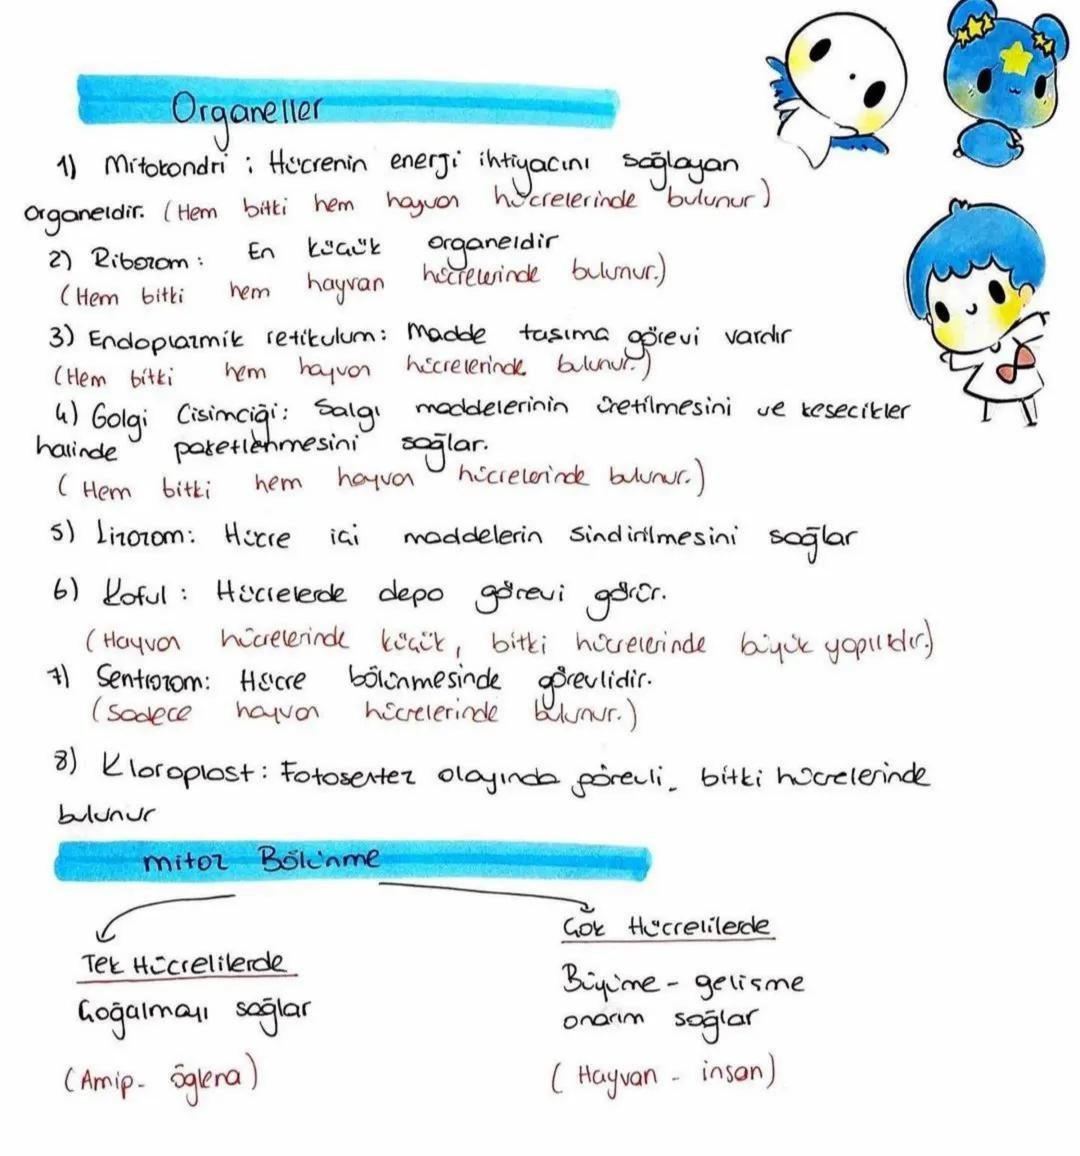 Organeller
1) Mitokondri : Hücrenin enerji ihtiyacını sağlayan
organeldir. (Hem bitki hem hayvan hücrelerinde bulunur)
2) Ribozom : En küçük organeldir
(Hem bitki hem hayvan hücrelerinde bulunur.)
3) Endoplazmik retikulum: Madde taşıma görevi vardır
(Hem bitki hem hayvan hücrelerinde bulunur.)
4) Golgi Cisimciği: Salgı maddelerinin üretilmesini ve kesecikler
halinde paketlenmesini sağlar.
(Hem bitki hem hayvan hücrelerinde bulunur.)
5) Lizozom: Hücre içi maddelerin Sindirilmesini sağlar
6) Koful : Hücrelerde depo görevi görür.
(Hayvan hücrelerinde küçük, bitki hücrelerinde büyük yapılıdır.)
7) Sentrozom: Hücre bölünmesinde görevlidir.
(Sadece hayvan hücrelerinde bulunur.)
8) Kloroplast : Fotosentez olayında görevli, bitki hücrelerinde
bulunur
mitoz Bölünme
Tek Hücrelilerde
Çoğalmayı sağlar
(Amip - öglena)
Çok Hücrelilerde
Büyüme - gelişme
onarım sağlar
(Hayvan - insan)